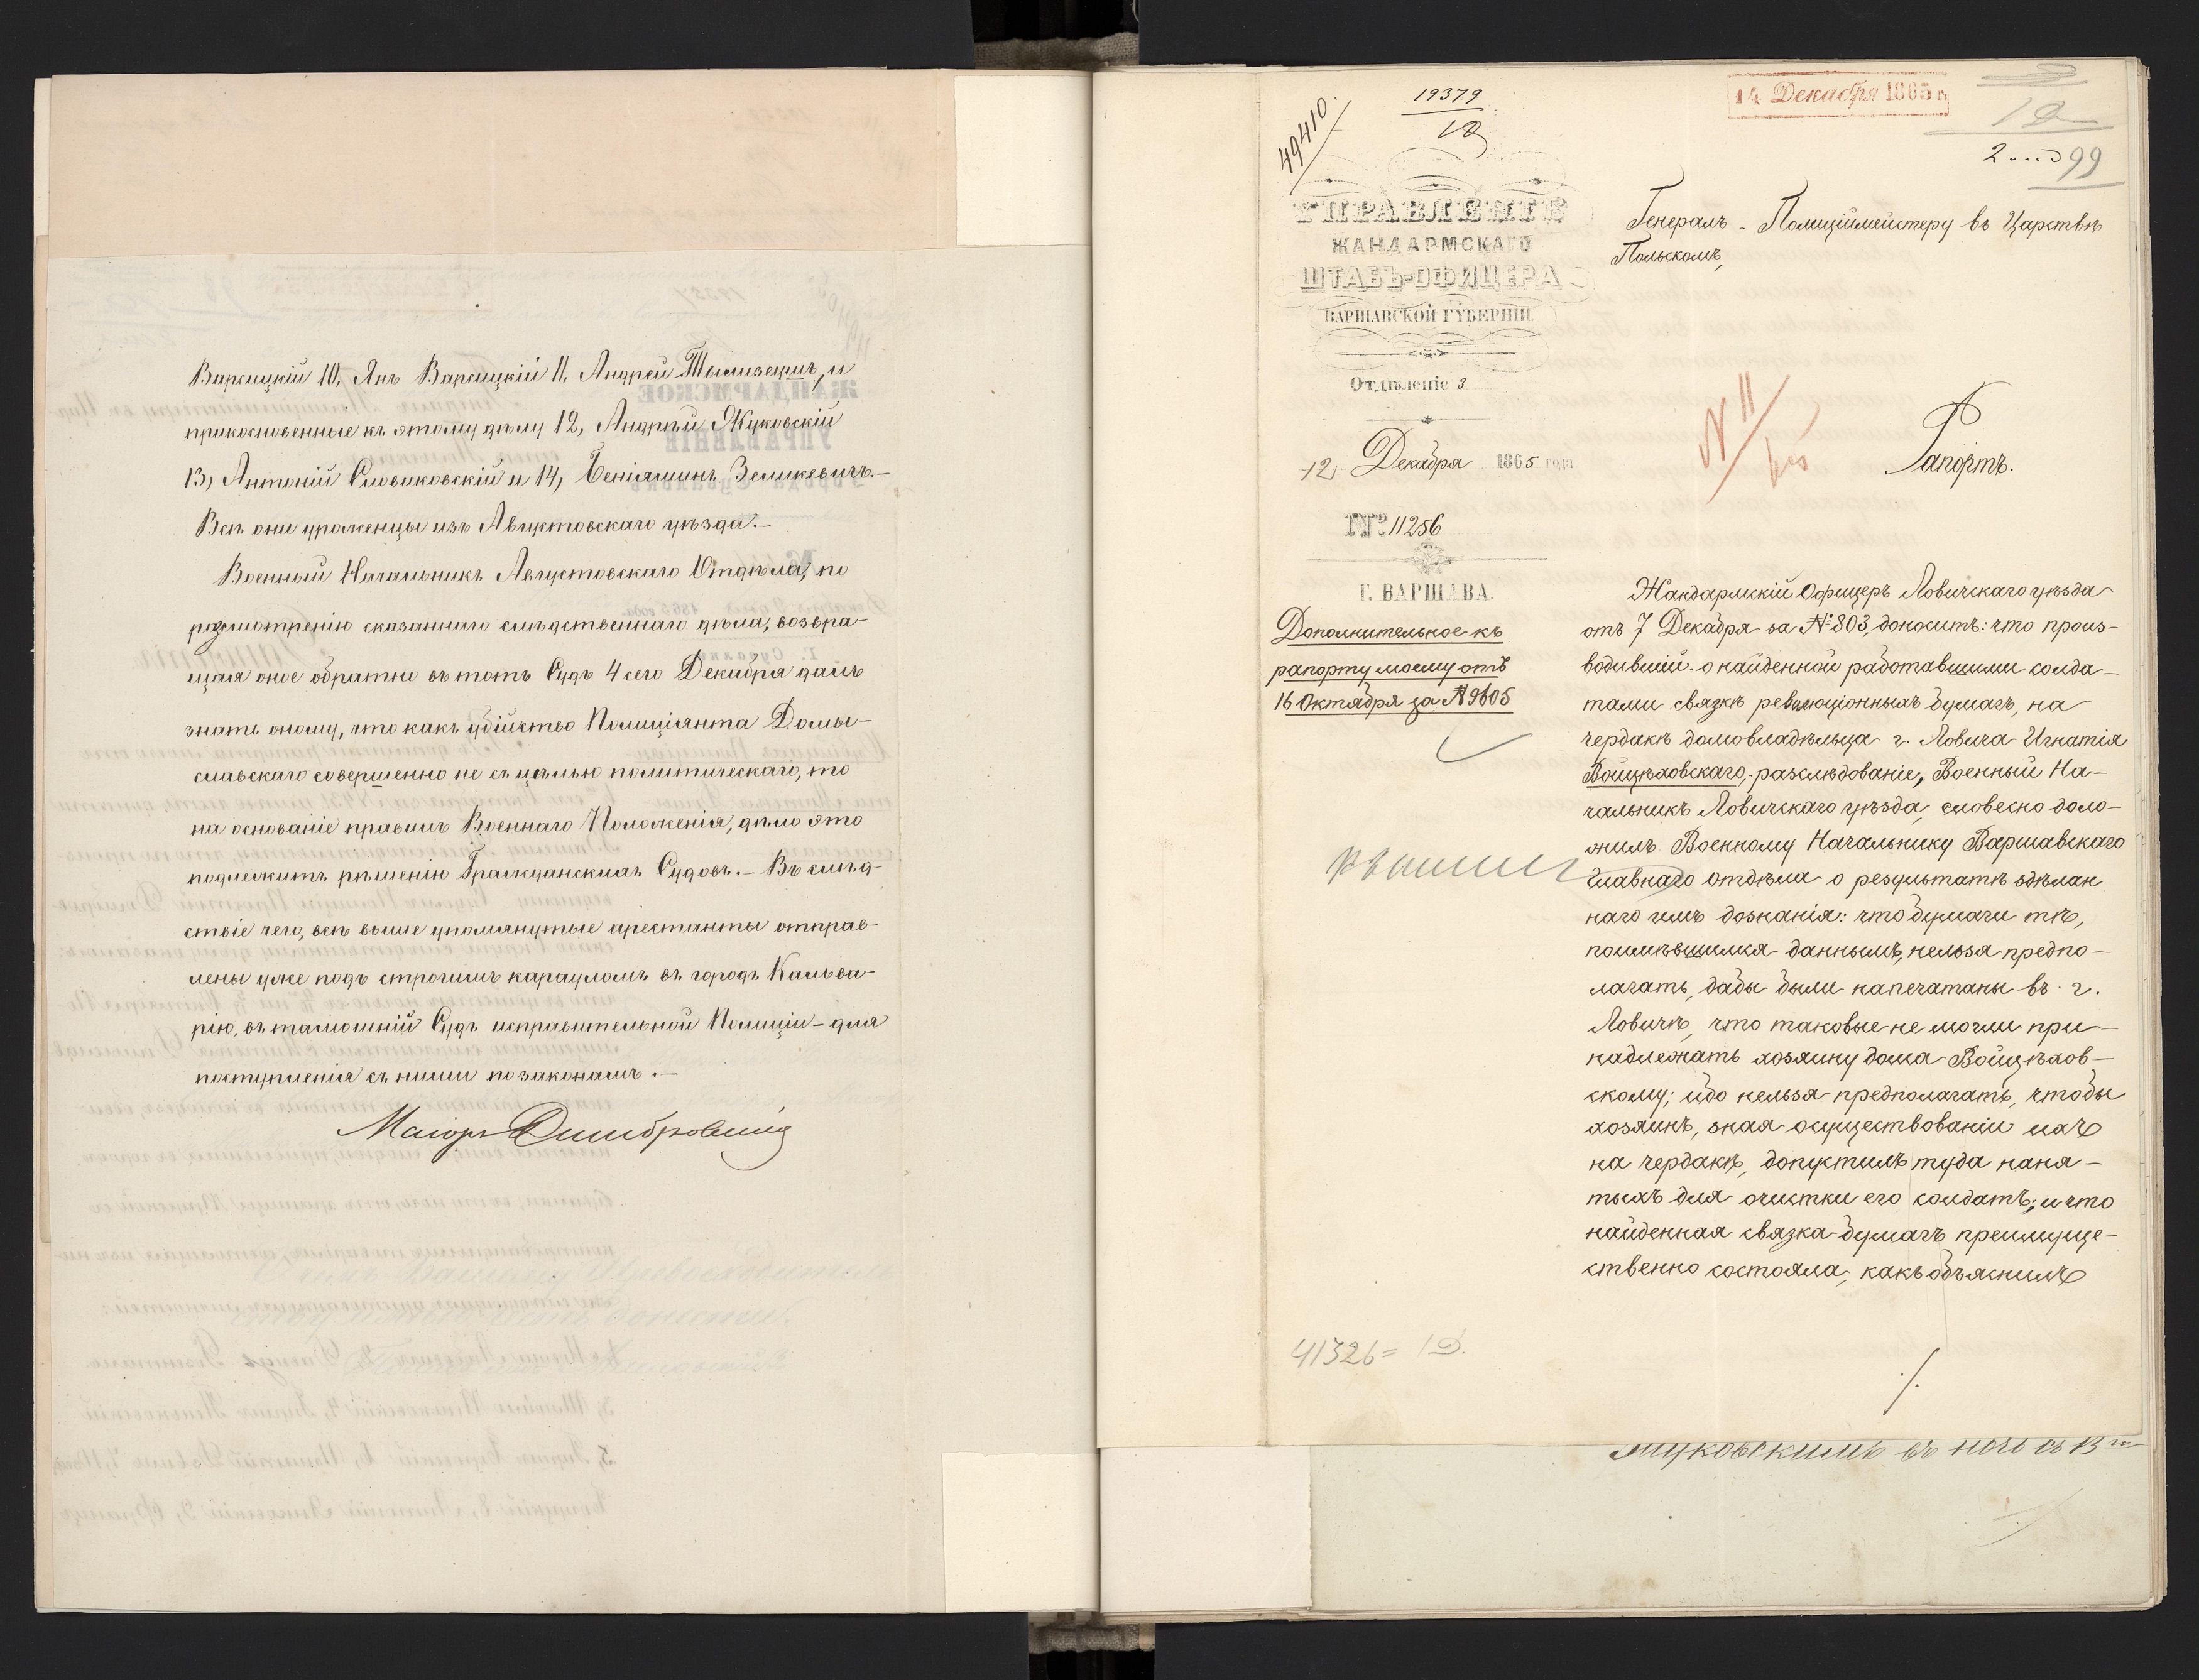 Варецкій 10, Янъ Варецкій 11, Андрей и
прикосновенные къ этому дѣлу 12, Андрѣй Жуковскій
13, Антоній Словиковскій и 14, Беніяминъ Зеликевичъ.—
Всѣ они уроженцы изъ Августовскаго уѣзда.—
Военный Начальникъ Августовскаго Отдѣла, по
разсмотренію сказаннаго слѣдственнаго дѣла, возвра-
щая оное обратно въ тотъ Судъ 4 сего Декабря далъ
знать оному, что какъ убійство Полиціянта Домы-
славскаго совершенно не съ цѣлью политическаго, то
на основаніе правилъ Военнаго Положенія, дѣло это
подлежитъ рѣшенію Гражданскихъ Судовъ.— Въ слѣд-
ствіе чего, всѣ выше упомянутые арестанты отправ-
лены уже подъ строгимъ карауломъ въ городъ Кальва-
рію, въ тамошній Судъ исправительной Полиціи — для
поступленія съ ними по законамъ.—
Маіоръ
49410.
19379
12
14 Декабря 1865 г.
12
99
УПРАВЛЕНІЕ
ЖАНДАРМСКАГО
ШТАБЪ-ОФИЦЕРА
ВАРШАВСКОЙ ГУБЕРНІИ.
Отдѣленіе 3
12 Декабря 1865 года
№ 11256
Г. ВАРШАВА.
Дополнительное къ
рапорту моему отъ
16 Октября за № 9605
Генералъ-Полиціймейстеру въ Царствѣ
Польскомъ,
N 11
Рапортъ.
Жандармскій Офицеръ Ловичскаго уѣзда
отъ 7 Декабря за № 803, доноситъ: что произ-
водившій о найденной работавшими солда-
тами связкѣ революціонныхъ бумагъ, на
чердакѣ домовладѣльца г. Ловича Игнатія
Войцѣховскаго, разслѣдованіе, Военный На-
чальникъ Ловичскаго уѣзда, словесно доло-
жилъ Военному Начальнику Варшавскаго
главнаго отдѣла о результатѣ здѣлан
наго имъ дознанія: что бумаги тѣ,
поимѣвшимся даннымъ, нельзя предпо-
лагать, дабы были напечатаны въ г.
Ловичѣ, что таковые не могли при-
надлежать хозяину дома Войцѣхов-
скому; ибо нельзя предполагать, чтобы
хозяинъ, зная осуществованіи ихъ
на чердакѣ, допустилъ туда наня-
тыхъ для очистки его солдатъ; и что
найденная связка бумагъ преимуще-
ственно состояла, какъ объяснилъ
./.
41326 = 1 Д.
Жуковскимъ въ ночь съ 13го